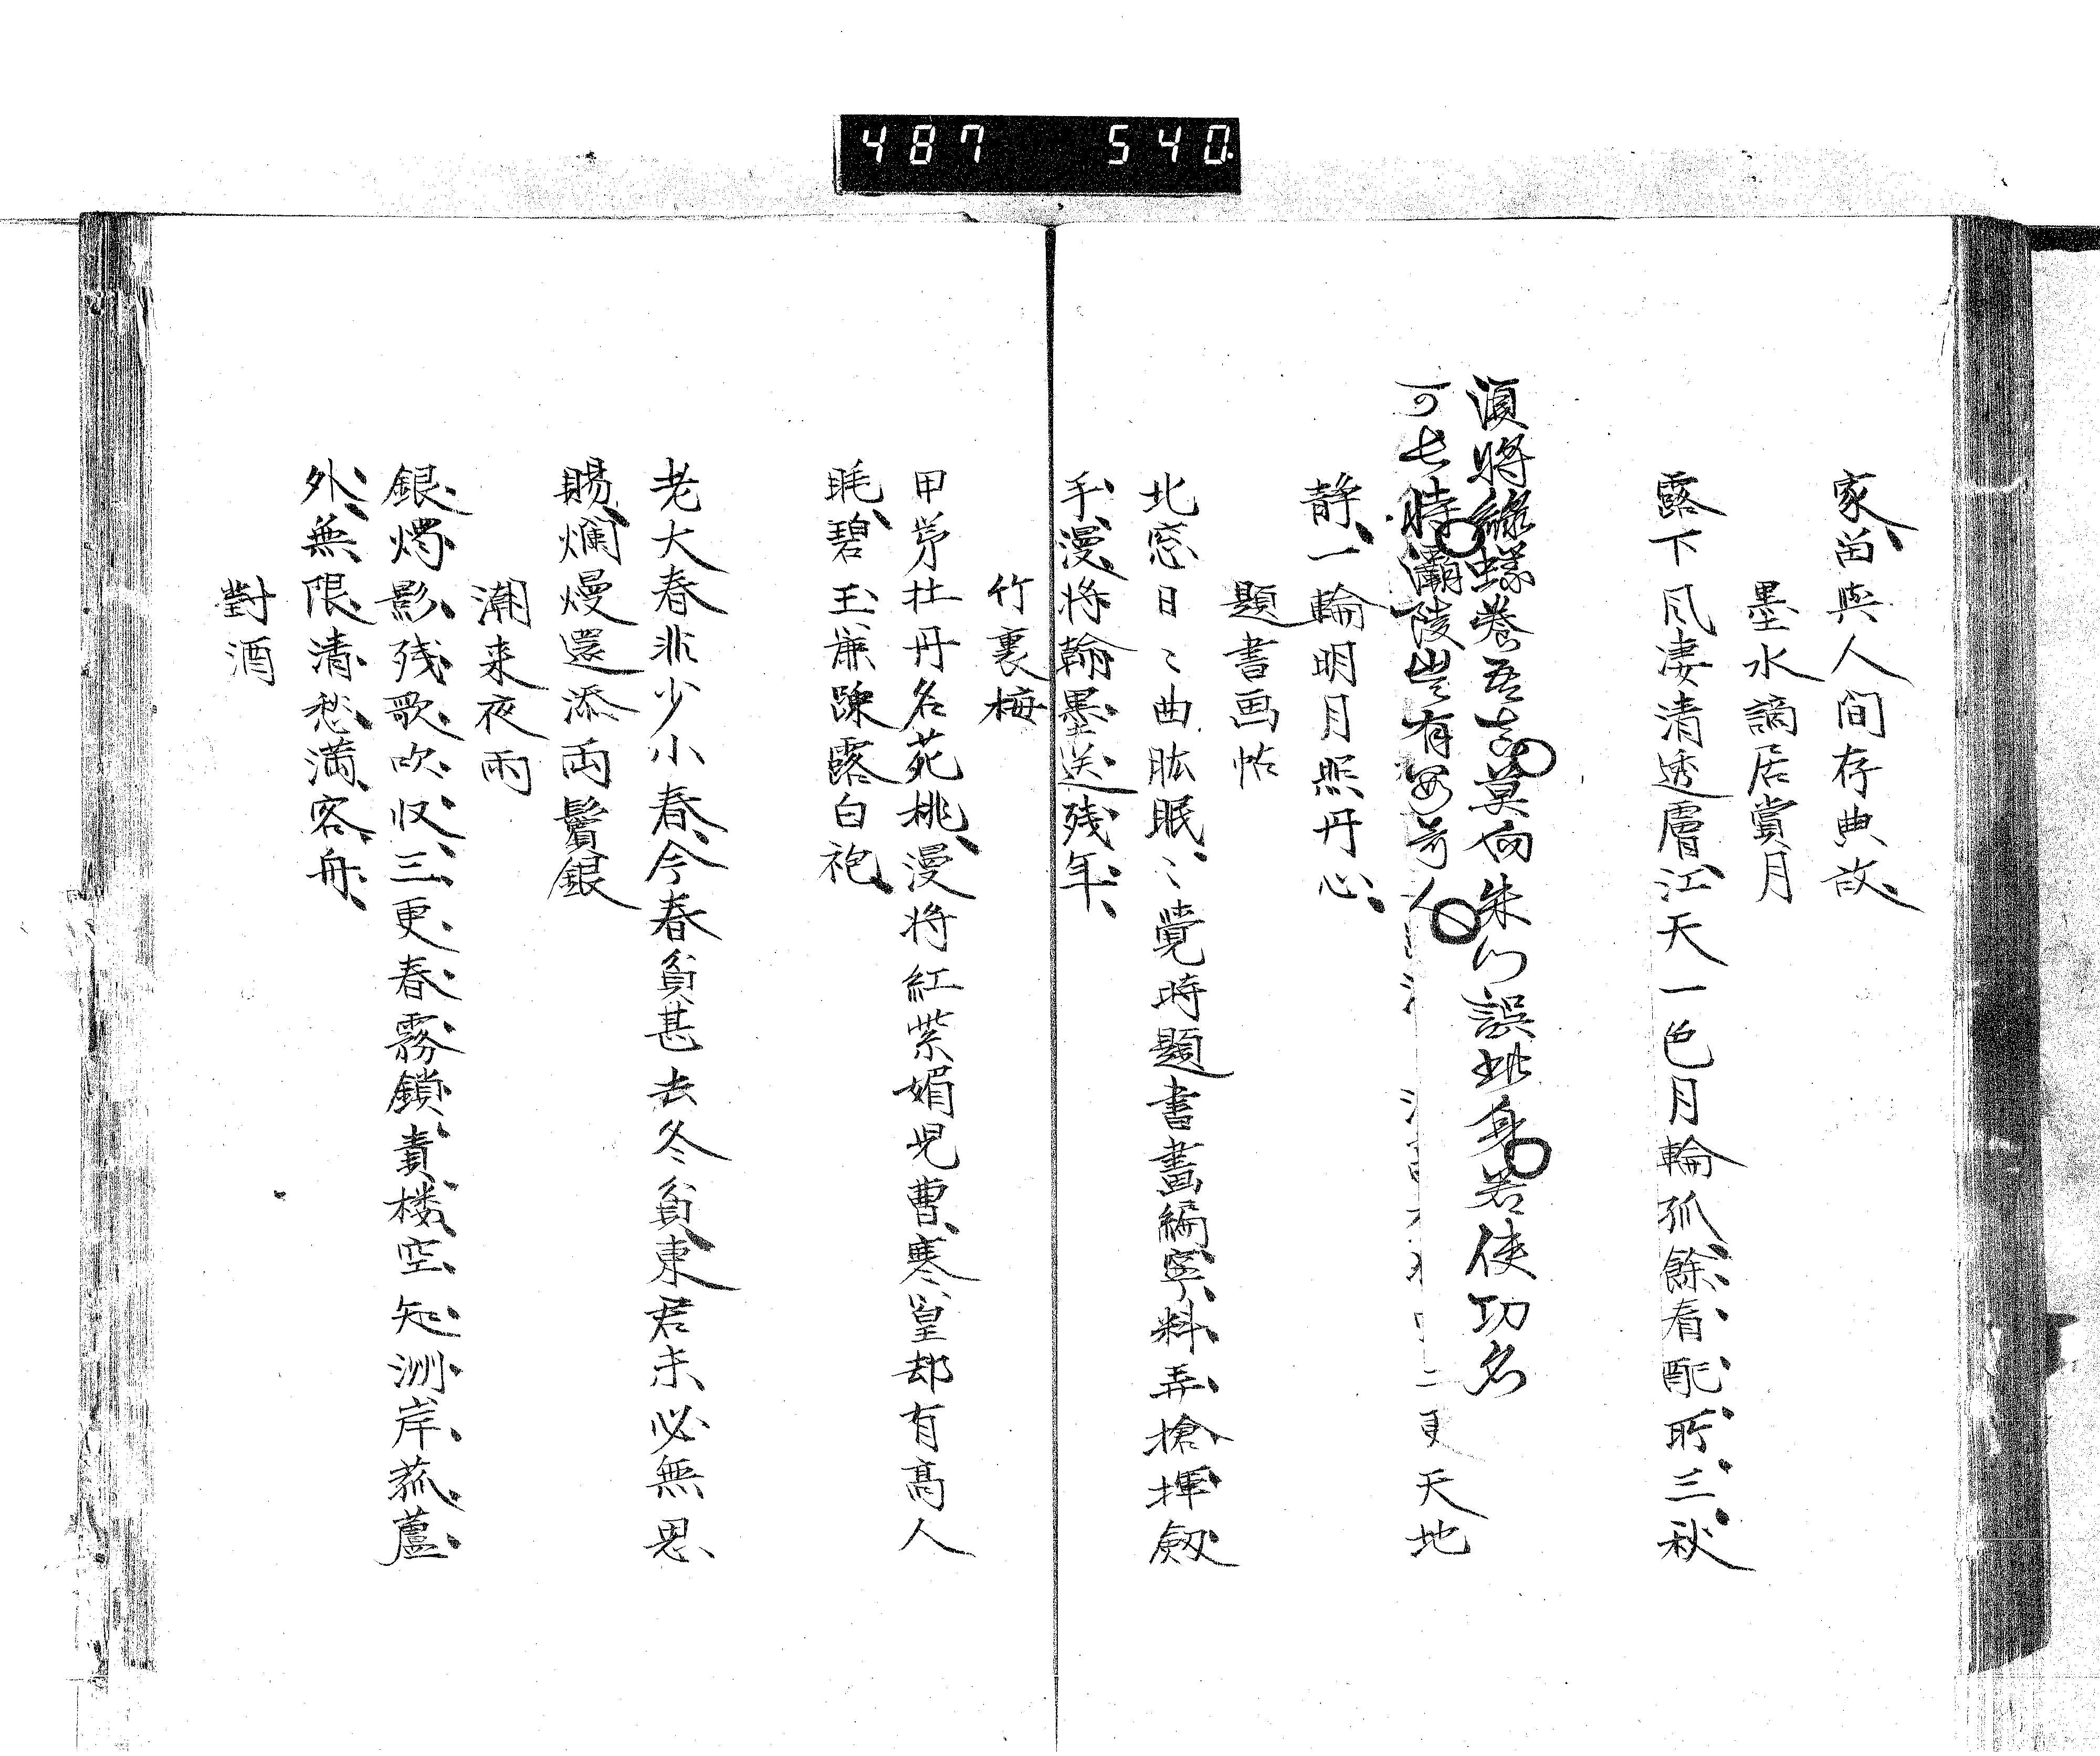 487 540
家苗与人間存典故
墨水謫居賞月
露下風凄清透膚江天一色月輪孤餘看配所三秋
須將綠蟻卷吾去莫向朱門誤此身若使功名
可長時灞陵豈有留人
二更天地
静一輪明月照丹心
題書画帖
北窓日〻曲肱眠〻覚時題書畫編寧料弄槍揮劔
手漫将翰墨送残年
竹裏梅
甲第牡丹名苑桃漫将紅紫媚児曹寒皇却有高人
眊碧玉簾踈露白袍
老大春非少小春今春貧甚去冬貧東君未必無恩
賜爛熳還添両鬢銀
潮来夜雨
銀燭影残歌吹収三更春霧鎖青楼空知洲岸菰蘆
外無限清愁満客舟
對酒